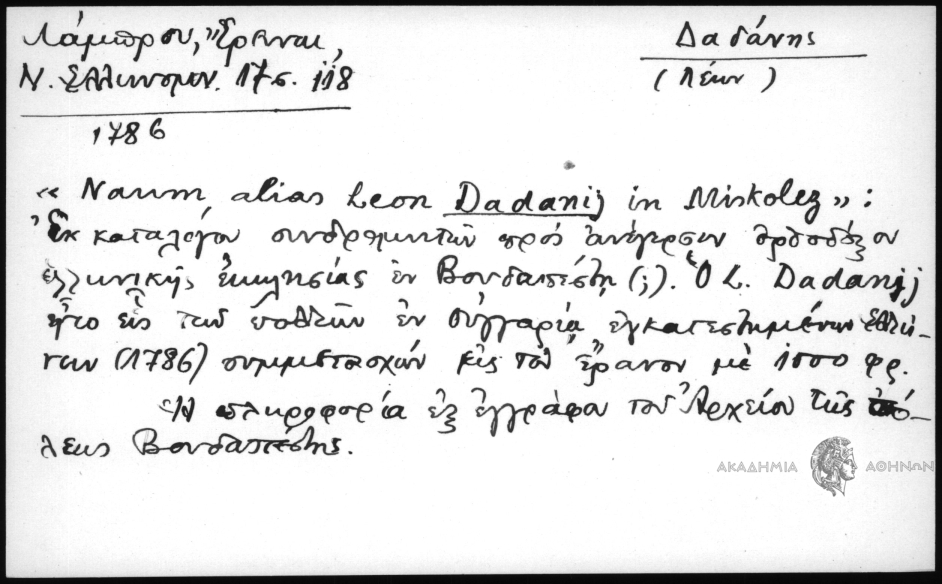 Λάμπρου, Ἔρευναι,
Ν. Ἑλληνομν. 17 σ. 118
1786
Δαδάνης
(Λέων)
« Naum, alias Leon Dadanij in Miskolcz » :
Ἐκ καταλόγου συνδρομητῶν πρὸς ἀνέγερσιν ὀρθοδόξου
ἑλληνικῆς ἐκκλησίας ἐν Βουδαπέστῃ (;). Ὁ L. Dadanij
ἦτο εἷς τῶν πολλῶν ἐν Οὑγγαρίᾳ ἐγκατεστημένων Ἑλλή-
νων (1786) συμμετασχὼν εἰς τὸν ἔρανον μὲ 1000 φρ.
Ἡ πληροφορία ἐξ ἐγγράφου τοῦ Ἀρχείου τῆς πό-
λεως Βουδαπέστης.
ΑΚΑΔΗΜΙΑ ΑΘΗΝΩΝ